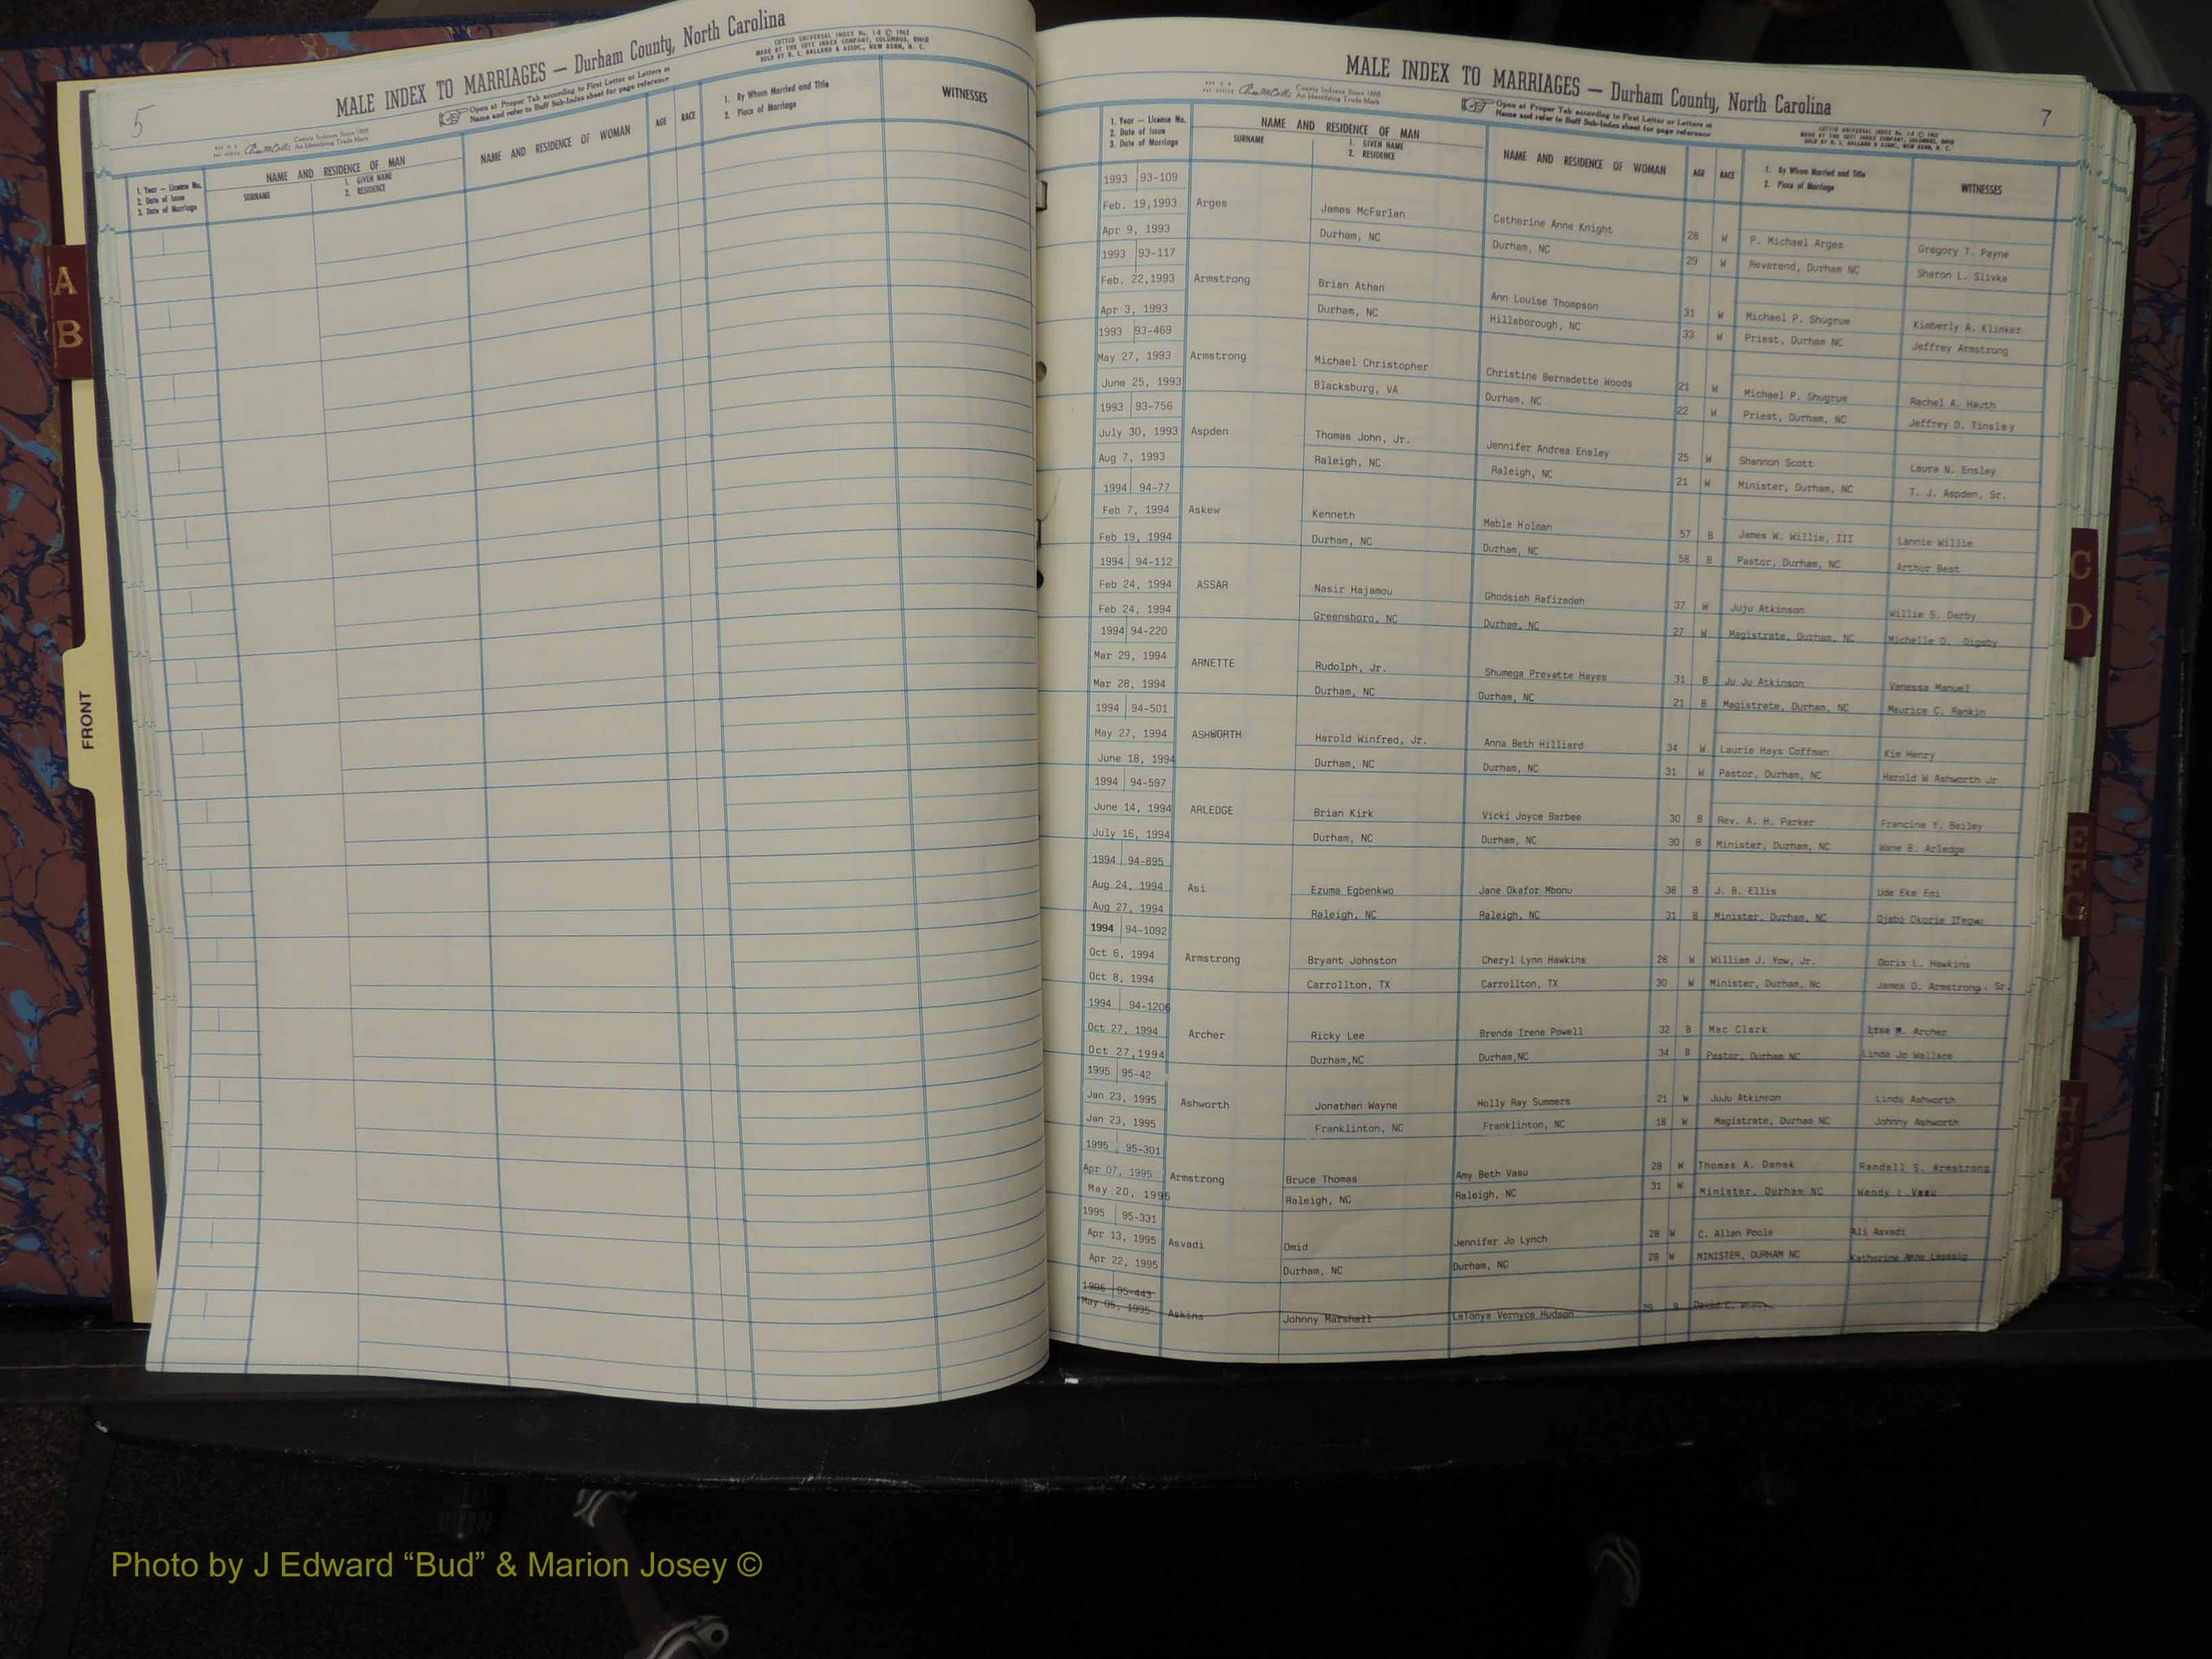 5
MALE INDEX TO MARRIAGES — Durham County, North Carolina
COTTCO UNIVERSAL INDEX No. 1-8 © 1962
MADE BY THE COTT INDEX COMPANY, COLUMBUS, OHIO
SOLD BY O. L. BALLARD & ASSOC., NEW BERN, N. C.
Open at Proper Tab according to First Letter or Letters in
Name and refer to Buff Sub-Index sheet for page reference
County Indexes Since 1888
An Identifying Trade Mark
1. Year — License No.
2. Date of Issue
3. Date of Marriage
NAME AND RESIDENCE OF MAN
SURNAME
1. GIVEN NAME
2. RESIDENCE
NAME AND RESIDENCE OF WOMAN
AGE
RACE
1. By Whom Married and Title
2. Place of Marriage
WITNESSES
A
B
FRONT
MALE INDEX TO MARRIAGES — Durham County, North Carolina
7
County Indexes Since 1888
An Identifying Trade Mark
Open at Proper Tab according to First Letter or Letters in
Name and refer to Buff Sub-Index sheet for page reference
1. Year — License No.
2. Date of Issue
3. Date of Marriage
NAME AND RESIDENCE OF MAN
SURNAME
1. GIVEN NAME
2. RESIDENCE
NAME AND RESIDENCE OF WOMAN
AGE
RACE
1. By Whom Married and Title
2. Place of Marriage
WITNESSES
1993 93-109
Feb. 19,1993 Arges James McFarlan Catherine Anne Knight 28 W P. Michael Arges Gregory T. Payne
Apr 9, 1993 Durham, NC Durham, NC 29 W Reverend, Durham NC Sharon L. Slivka
1993 93-117
Feb. 22,1993 Armstrong Brian Athan Ann Louise Thompson 31 W Michael P. Shugrue Kimberly A. Klinker
Apr 3, 1993 Durham, NC Hillsborough, NC 33 W Priest, Durham NC Jeffrey Armstrong
1993 93-469
May 27, 1993 Armstrong Michael Christopher Christine Bernadette Woods 21 W Michael P. Shugrue Rachel A. Hauth
June 25, 1993 Blacksburg, VA Durham, NC 22 W Priest, Durham, NC Jeffrey D. Tinsley
1993 93-756
July 30, 1993 Aspden Thomas John, Jr. Jennifer Andrea Ensley 25 W Shannon Scott Laura N. Ensley
Aug 7, 1993 Raleigh, NC Raleigh, NC 21 W Minister, Durham, NC T. J. Aspden, Sr.
1994 94-77
Feb 7, 1994 Askew Kenneth Mable Holman 57 B James W. Willie, III Lannie Willie
Feb 19, 1994 Durham, NC Durham, NC 58 B Pastor, Durham, NC Arthur Best
1994 94-112
Feb 24, 1994 ASSAR Nasir Hajamou Ghodsieh Rafizadeh 37 W Juju Atkinson Willie S. Darby
Feb 24, 1994 Greensboro, NC Durham, NC 27 W Magistrate, Durham, NC Michelle D. Digsby
1994 94-220
Mar 29, 1994 ARNETTE Rudolph, Jr. Shumega Prevette Hayes 31 B Ju Ju Atkinson Vanessa Manuel
Mar 28, 1994 Durham, NC Durham, NC 21 B Magistrate, Durham, NC Maurice C. Rankin
1994 94-501
May 27, 1994 ASHWORTH Harold Winfred, Jr. Anna Beth Hilliard 34 W Laurie Hays Coffman Kim Henry
June 18, 1994 Durham, NC Durham, NC 31 W Pastor, Durham, NC Harold W Ashworth Jr
1994 94-597
June 14, 1994 ARLEDGE Brian Kirk Vicki Joyce Barbee 30 B Rev. A. H. Parker Francine Y. Bailey
July 16, 1994 Durham, NC Durham, NC 30 B Minister, Durham, NC Wane B. Arledge
1994 94-895
Aug 24, 1994 Asi Ezuma Egbenkwo Jane Okafor Mbonu 38 B J. B. Ellis Uda Eke Eni
Aug 27, 1994 Raleigh, NC Raleigh, NC 31 B Minister, Durham, NC Okorie
1994 94-1092
Oct 6, 1994 Armstrong Bryant Johnston Cheryl Lynn Hawkins 26 W William J. Yow, Jr. Doris L. Hawkins
Oct 8, 1994 Carrollton, TX Carrollton, TX 30 W Minister, Durham, Nc James D. Armstrong, Sr.
1994 94-1206
Oct 27, 1994 Archer Ricky Lee Brenda Irene Powell 32 B Mac Clark Lisa M. Archer
Oct 27,1994 Durham,NC Durham,NC 34 B Pastor, Durham NC Linda Jo Wallace
1995 95-42
Jan 23, 1995 Ashworth Jonathan Wayne Holly Ray Summers 21 W JuJu Atkinson Linda Ashworth
Jan 23, 1995 Franklinton, NC Franklinton, NC 18 W Magistrate, Durham NC Johnny Ashworth
1995 95-301
Apr 07, 1995 Armstrong Bruce Thomas Amy Beth Vasu 28 W Thomas A. Danek Randall S. Armstrong
May 20, 1995 Raleigh, NC Raleigh, NC 31 W Minister, Durham NC Wendy L Vasu
1995 95-331
Apr 13, 1995 Asvadi Omid Jennifer Jo Lynch 28 W C. Allen Poole Ali Asvadi
Apr 22, 1995 Durham, NC Durham, NC 28 W MINISTER, DURHAM NC Katherine Anne
1995 95-443
May 05, 1995 Askins Johnny Marshall LaTonya Vernyce Hudson David C.
C
D
E
F
G
Photo by J Edward “Bud” & Marion Josey ©